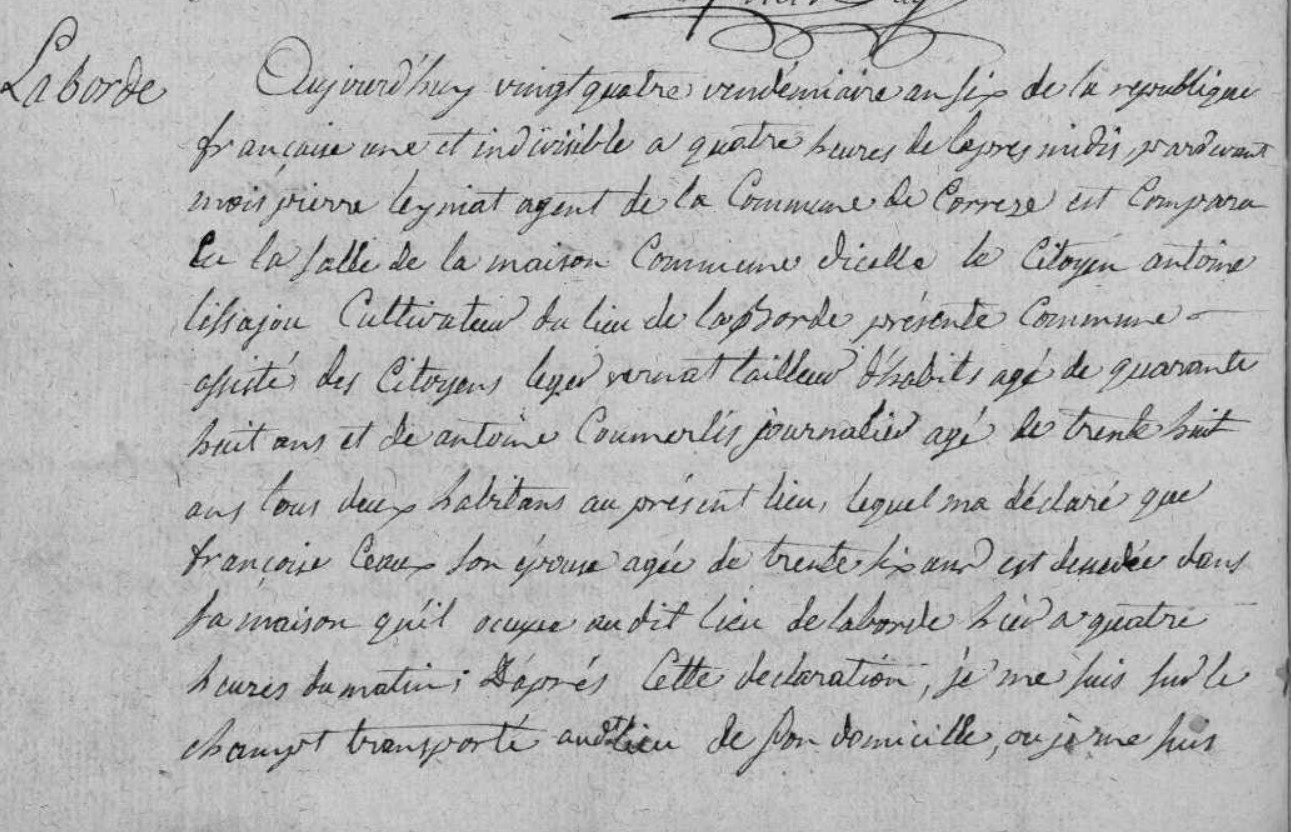 Laborde
Aujourd'huy vingt quatre vendémiaire an six de la republique
francaise une et indivisible a quatre heures de lapres midis pardevant
mois pierre leyniat agent de la Commune de Correze est Compara
En la salle de la maison Commune dicelle le Citoyen antoine
lissajou Cultivateur du lieu de la Borde présente Commune
assisté des Citoyens leger vernat tailleur d'habits agé de quarante
huit ans et de antoine Coumerlis journalier agé de trente huit
ans tous deux habitans au présent lieu, lequel ma déclaré que
françoise Ceaux son épouse agée de trente six ans est décédée dans
sa maison qu'il occupe au dit lieu de laborde hier a quatre
heures du matin; D'aprés Cette declaration, je me suis sur le
champt transporté audt lieu de son domicille, ou je me suis